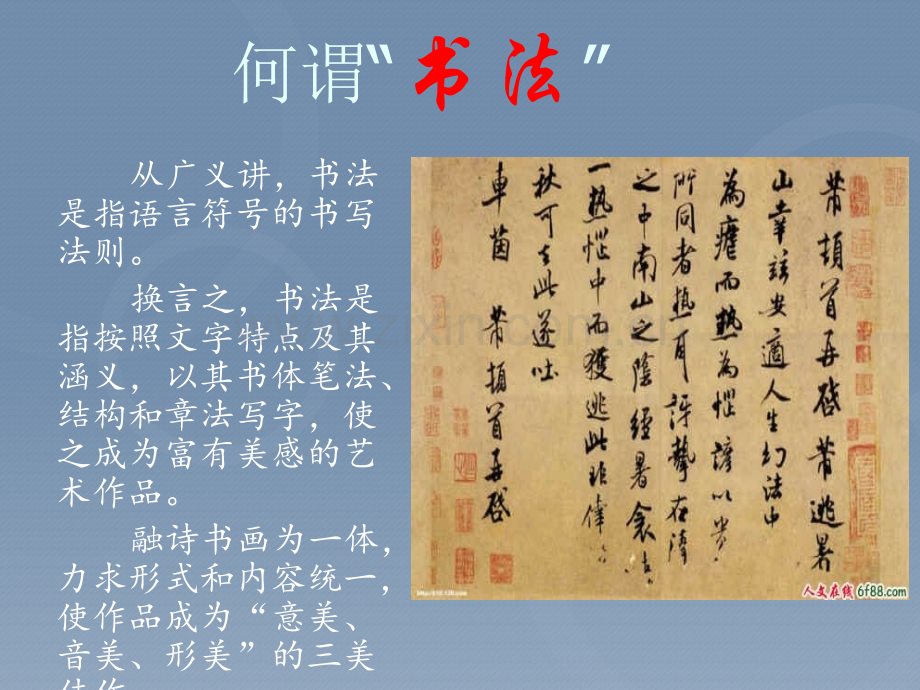 何谓“书法”
从广义讲，书法
是指语言符号的书写
法则。
换言之，书法是
指按照文字特点及其
涵义，以其书体笔法、
结构和章法写字，使
之成为富有美感的艺
术作品。
融诗书画为一体，
力求形式和内容统一，
使作品成为“意美、
音美、形美”的三美
佳作
芾頓首再啓芾逃暑
山幸兹安適人生幻法中
為瘧而熱為惱諺以貴
所同者熱耳訝 在
之中南山之陰經暑衾
一熱惱中而獲逃此非倖
秋可去此遂吐
車茵 芾頓首再啓
人文在线 6f88.com
zixin.com.cn